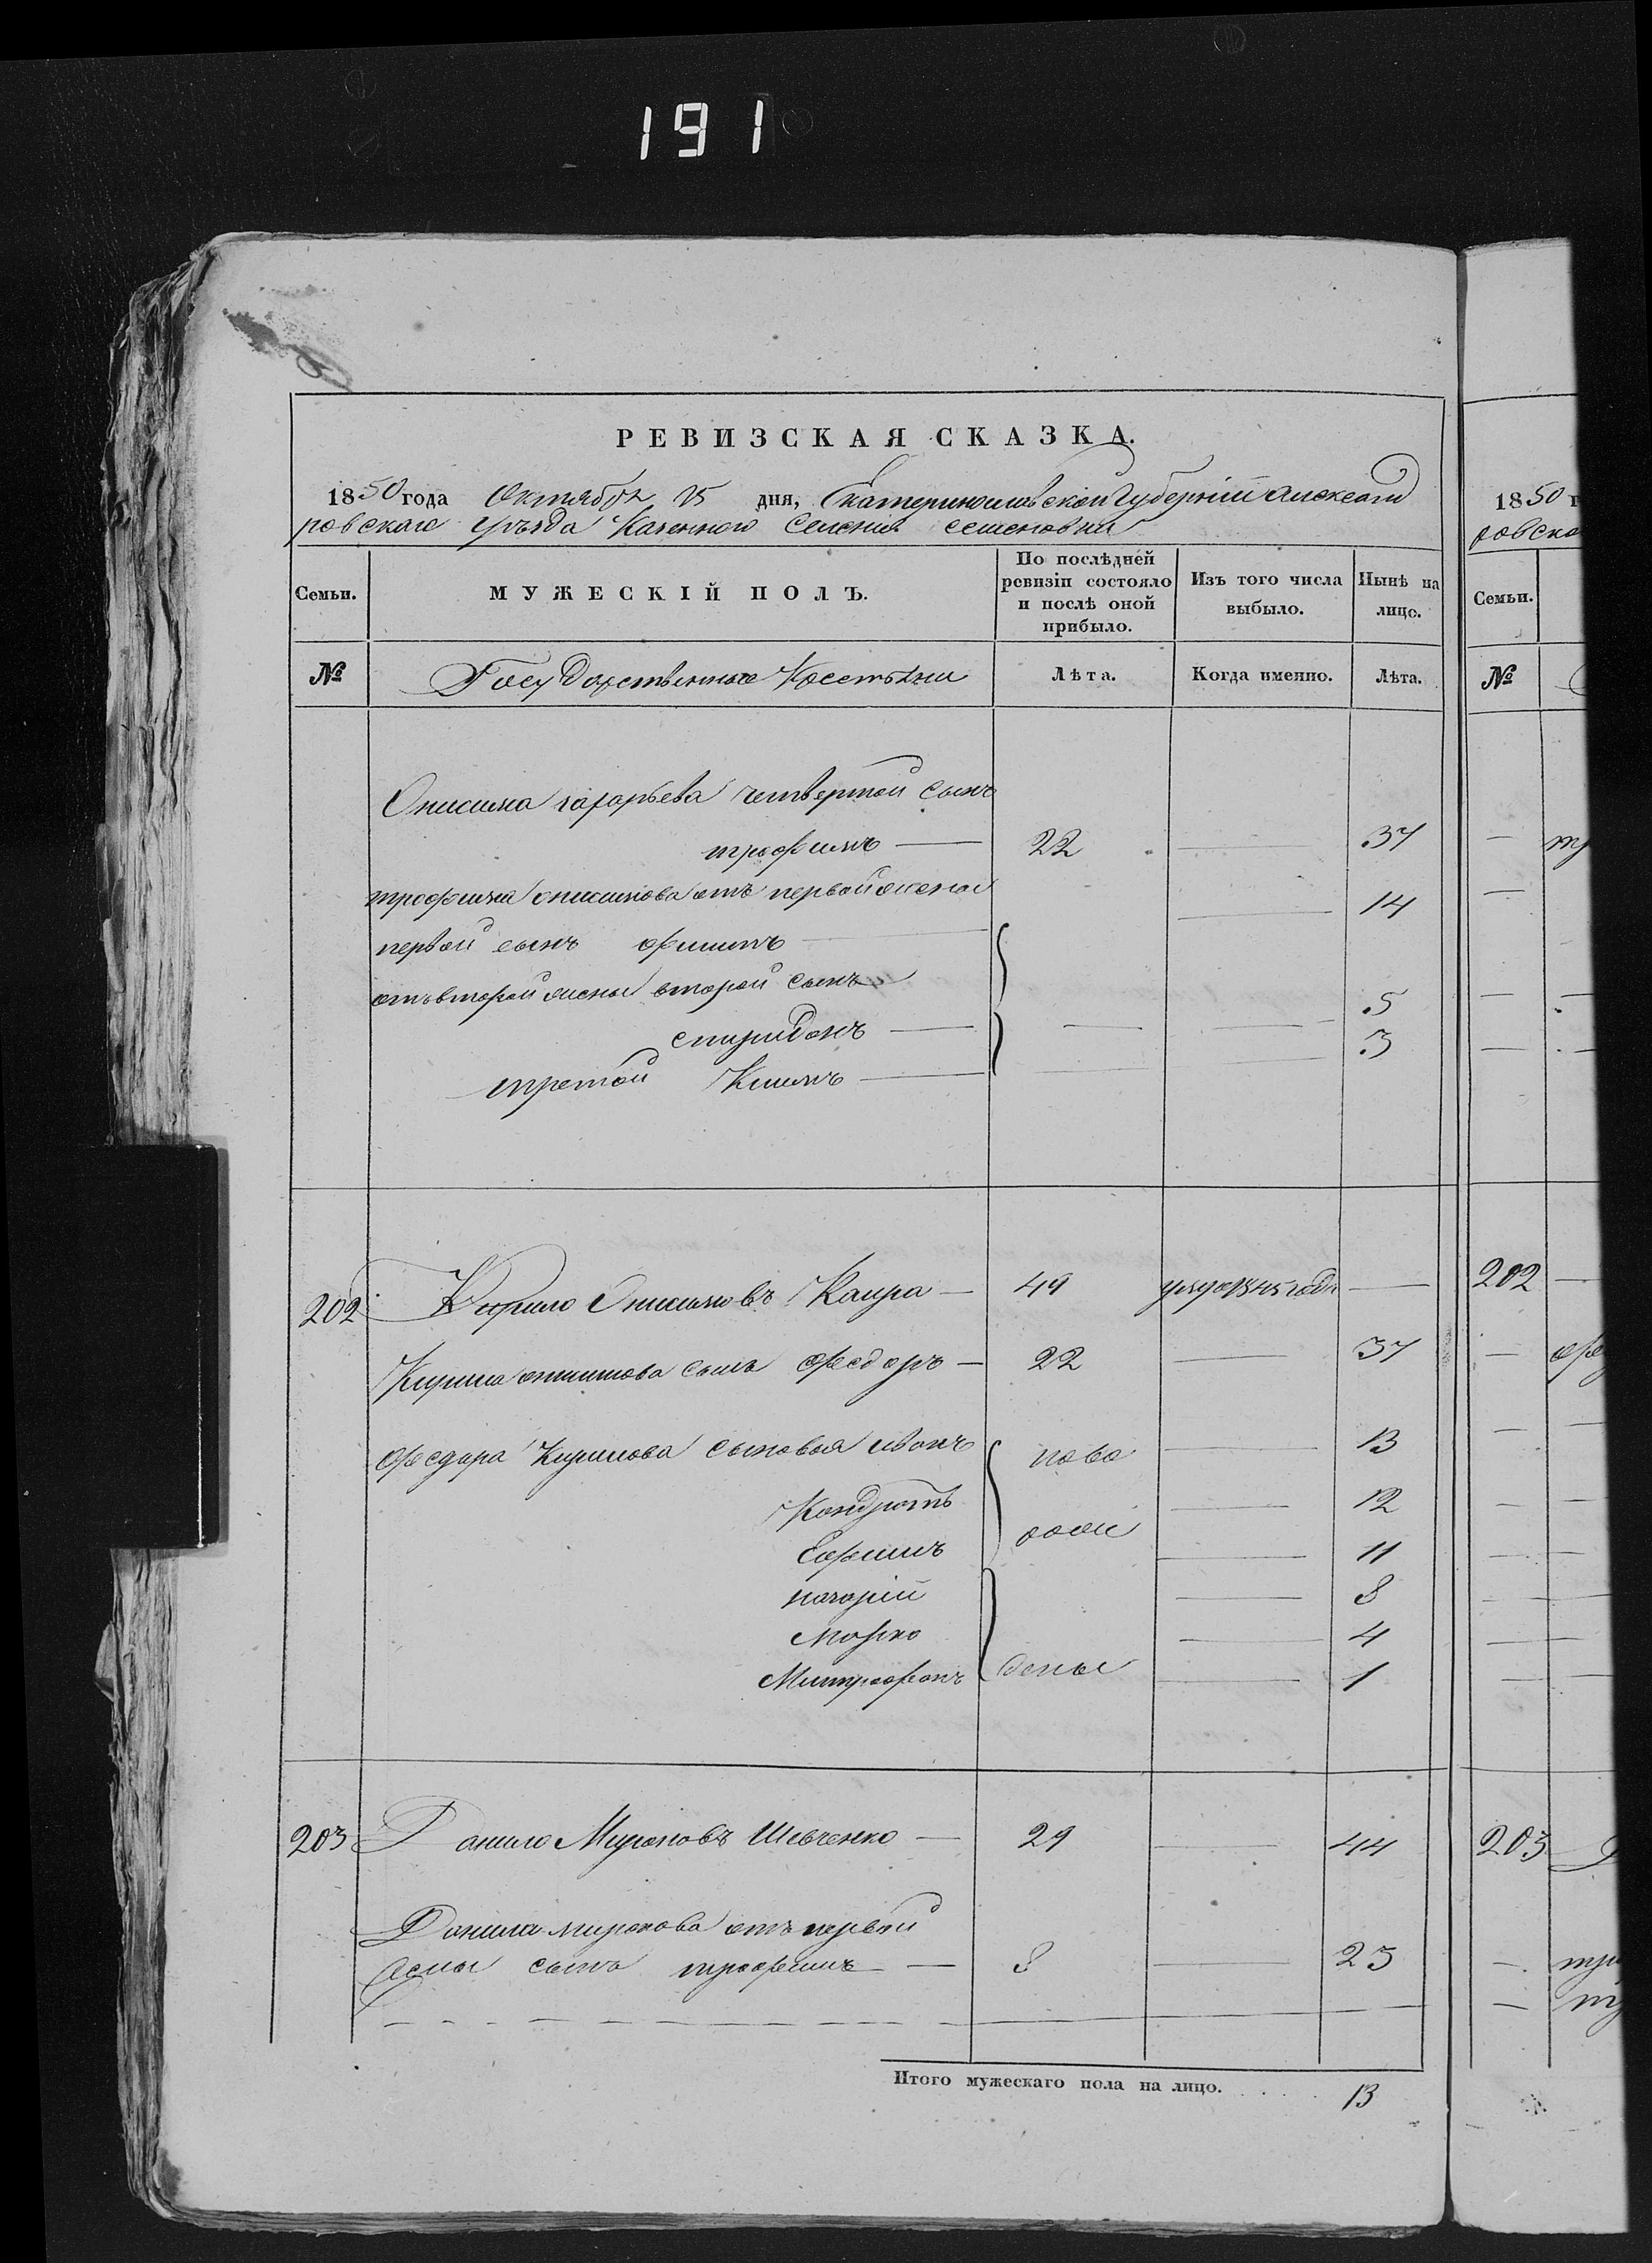 191
РЕВИЗСКАЯ СКАЗКА.
1850 года Октября 25 дня, Екатеринославской Губерній Александ
ровскаго уѣзда Казенного Селения Семеновки
Семьи. МУЖЕСКІЙ ПОЛЪ. По послѣдней ревизіи состояло и послѣ оной прибыло. Изъ того числа выбыло. Нынѣ на лицо.
№ Государственные Крестьяни Лѣта. Когда именно. Лѣта.
Онисима четвертой сынъ
трофимъ — 22 — 37
трофима онисимова отъ первой жены — 14
первой сынъ —
отъ второй жены второй сынъ
спиридонъ — — — 5
третой Климъ — — — 3
202 Кирило Онисимовъ Каира — 49 1845 года —
Кирила онисимова сынъ Федоръ — 22 — 37
Федора Кирилова сыновья иванъ ново — 13
Кондратъ — 12
Ефимъ рож — 11
назарій — 8
Марко — 4
Митрофанъ дены — 1
203 Данило Мироновъ Шевченко — 29 — 44
Данила миронова отъ первой
жены сынъ трофимъ — 8 — 23
Итого мужескаго пола на лицо. . . . . 13
1850 г
ровска
Семьи.
№
202
203